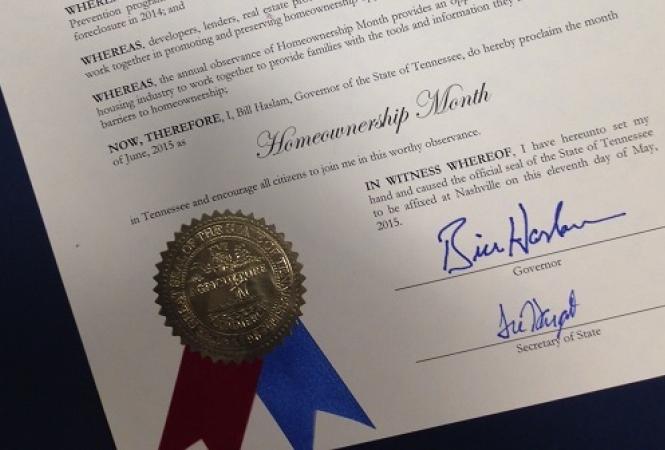 WHERE
Prevention progra
foreclosure in 2014; and
WHEREAS, developers, lenders, real estate pro
work together in promoting and preserving homeownership opp
WHEREAS, the annual observance of Homeownership Month provides an opp
housing industry to work together to provide families with the tools and information they
barriers to homeownership;
NOW, THEREFORE, I, Bill Haslam, Governor of the State of Tennessee, do hereby proclaim the month
of June, 2015 as
Homeownership Month
in Tennessee and encourage all citizens to join me in this worthy observance.
IN WITNESS WHEREOF, I have hereunto set my
hand and caused the official seal of the State of Tennessee
to be affixed at Nashville on this eleventh day of May,
2015.
Bill Haslam
Governor
Tre Hargett
Secretary of State
AGRICULTURE
COMMERCE